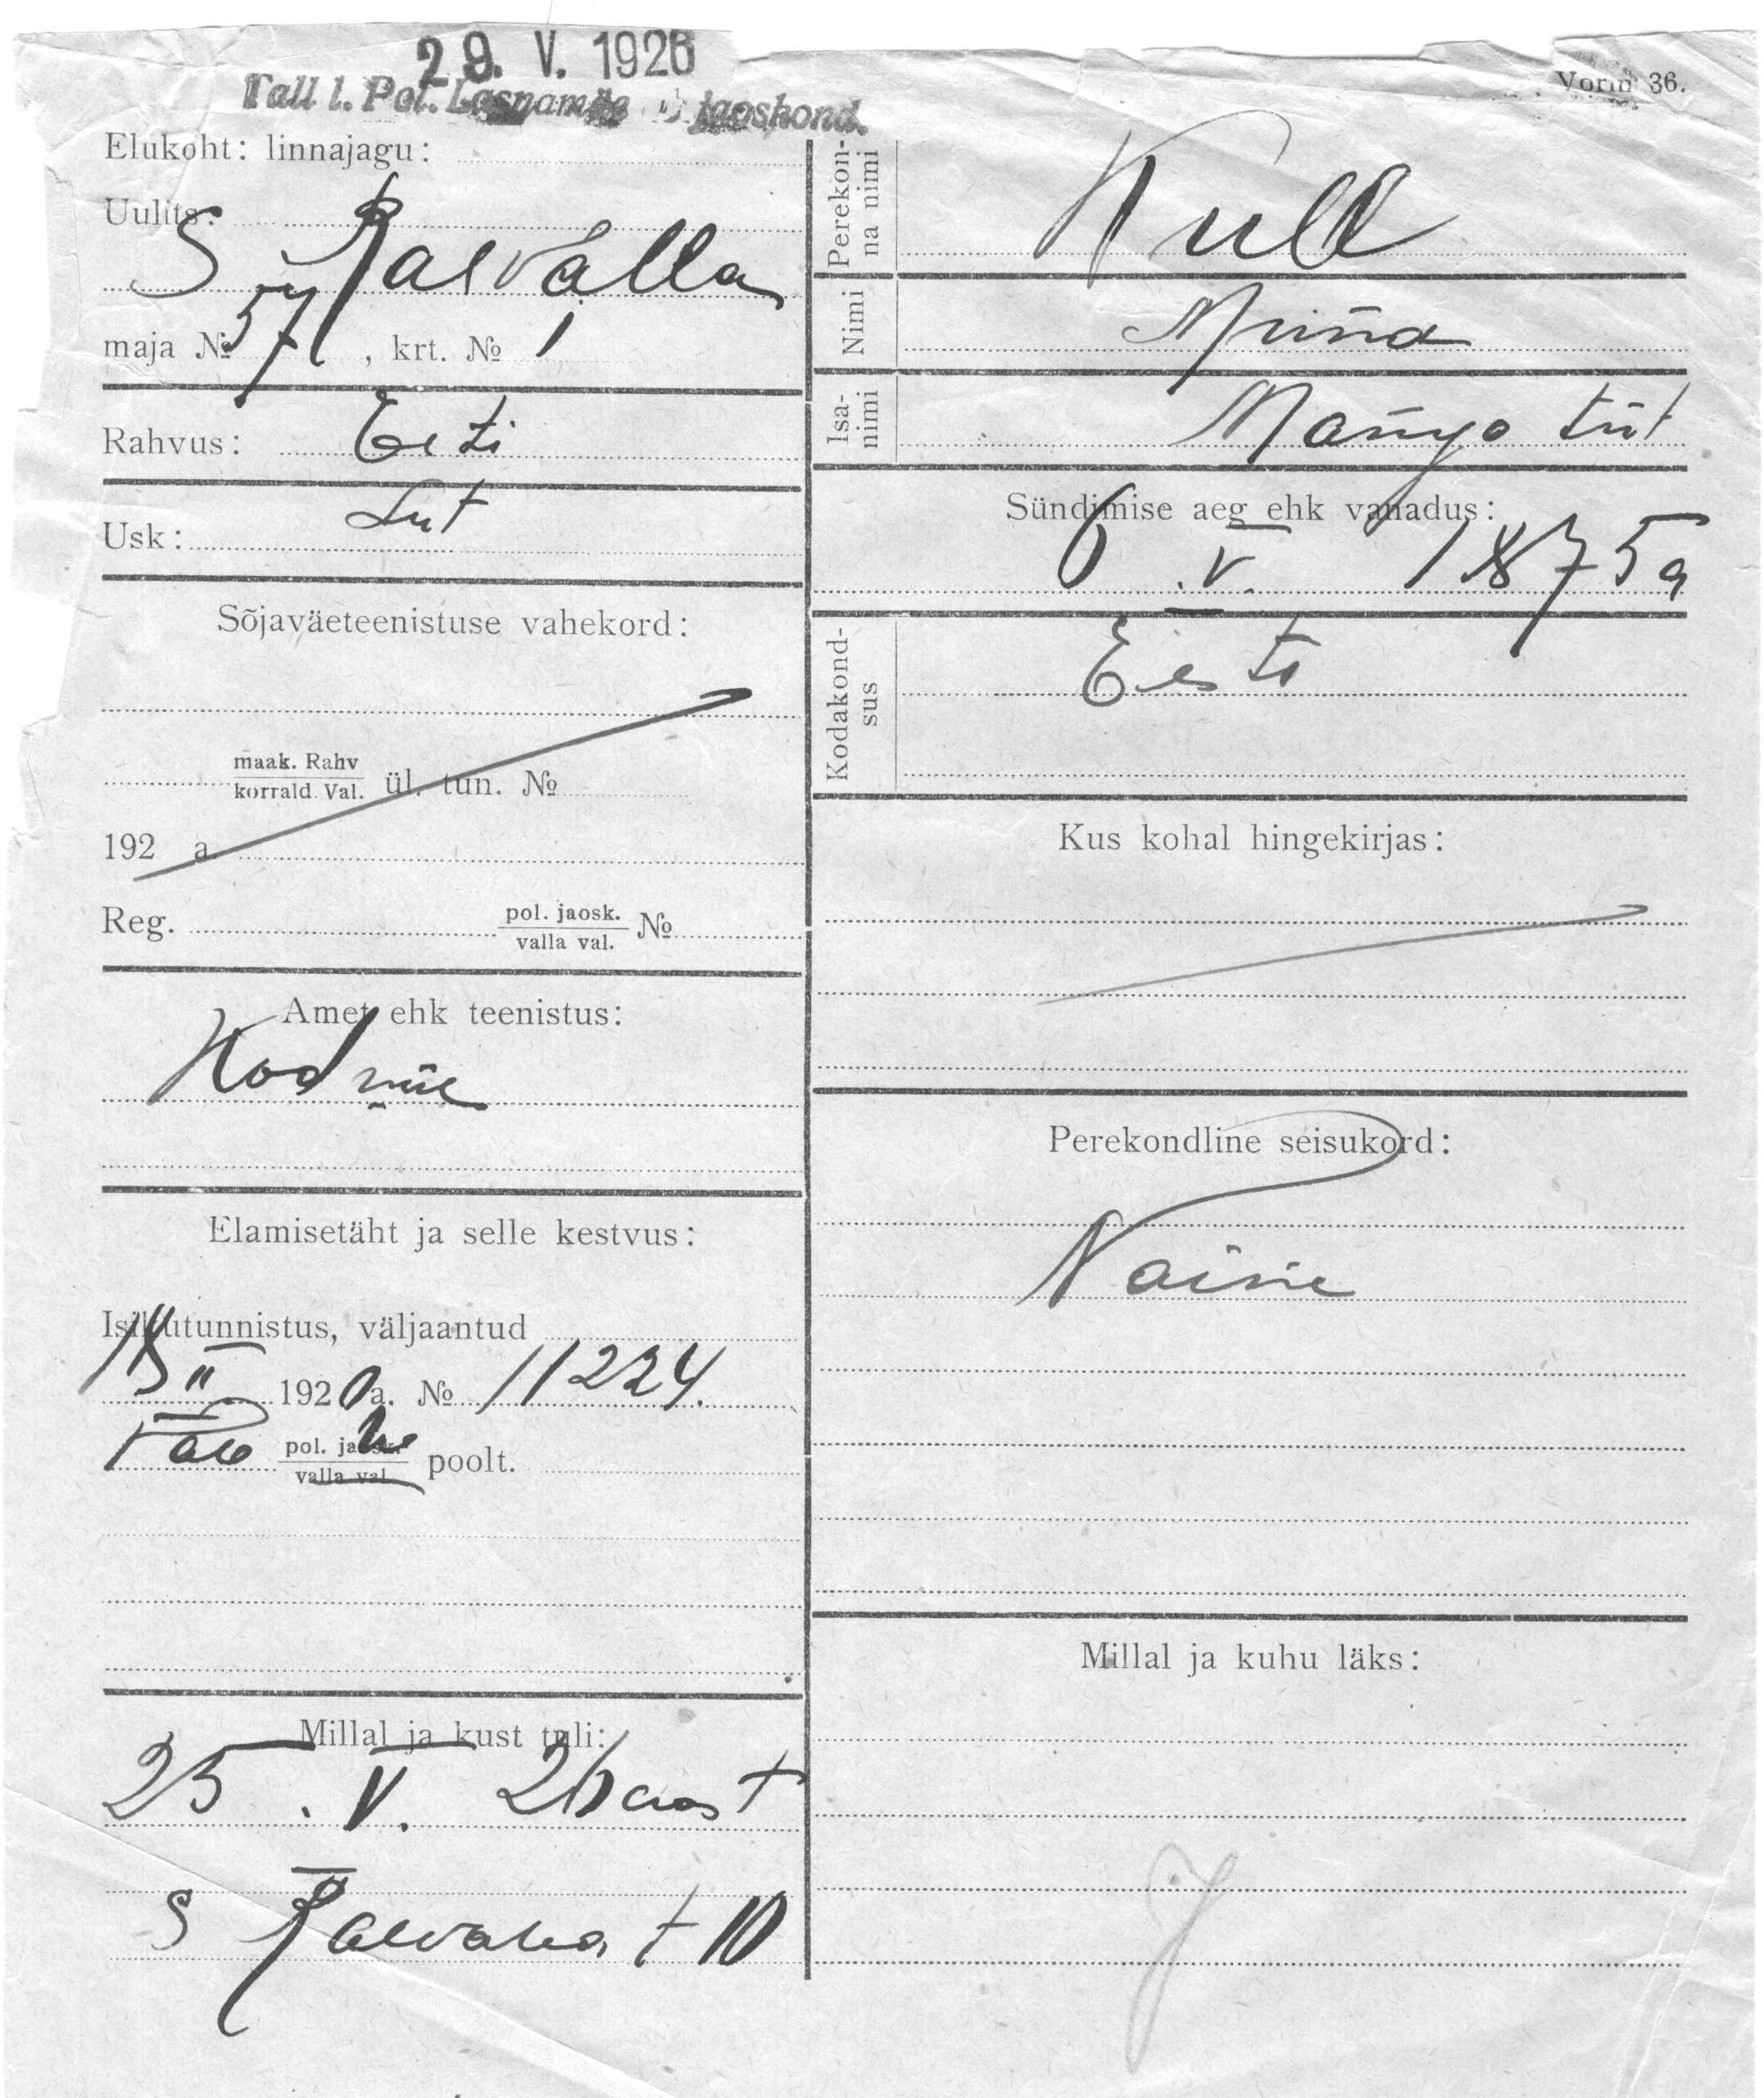 29. V. 1926
Tall l. Pol. Lasnamäe jaoskond.
Vorm 36.
Elukoht: linnajagu:
Uulits:
S
maja № 57, krt. № 1
Rahvus: Eesti
Usk: Lut
Sõjaväeteenistuse vahekord:
maak. Rahv
korrald. Val. ül. tun. №
192 a.
Reg. pol. jaosk.
valla val. №
Amet ehk teenistus:
Elamisetäht ja selle kestvus:
Isikutunnistus, väljaantud
15 II 1920 a. № 11224.
pol. jaosk.
valla val. poolt.
Millal ja kust tuli:
25. V. 26 aast
S
t 10
Perekonna nimi
Kull
Nimi
Miina
Isanimi
tüt
Sündimise aeg ehk vanadus:
6. V. 1875 a
Kodakondsus
Eesti
Kus kohal hingekirjas:
Perekondline seisukord:
Naine
Millal ja kuhu läks: